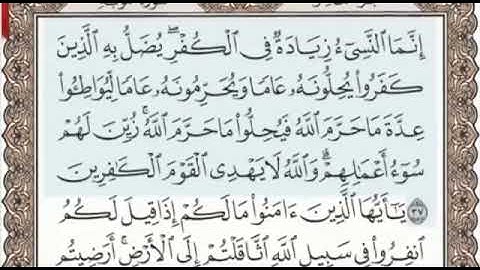 إِنَّمَا ٱلنَّسِىٓءُ زِيَادَةٌ فِى ٱلْكُفْرِ ۖ يُضَلُّ بِهِ ٱلَّذِينَ
كَفَرُوا۟ يُحِلُّونَهُۥ عَامًا وَيُحَرِّمُونَهُۥ عَامًا لِّيُوَاطِـُٔوا۟
عِدَّةَ مَا حَرَّمَ ٱللَّهُ فَيُحِلُّوا۟ مَا حَرَّمَ ٱللَّهُ ۚ زُيِّنَ لَهُمْ
سُوٓءُ أَعْمَـٰلِهِمْ ۗ وَٱللَّهُ لَا يَهْدِى ٱلْقَوْمَ ٱلْكَـٰفِرِينَ
٣٧ يَـٰٓأَيُّهَا ٱلَّذِينَ ءَامَنُوا۟ مَا لَكُمْ إِذَا قِيلَ لَكُمُ
ٱنفِرُوا۟ فِى سَبِيلِ ٱللَّهِ ٱثَّاقَلْتُمْ إِلَى ٱلْأَرْضِ ۚ أَرَضِيتُم